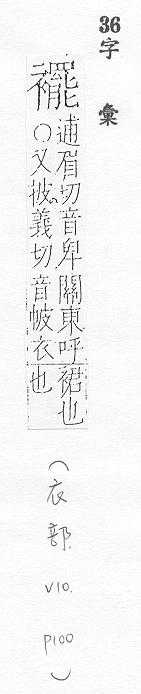 36
字彙
襬
逋眉切音卑關東呼裙也
○又彼義切音帔衣也
(衣部. V10. P100)